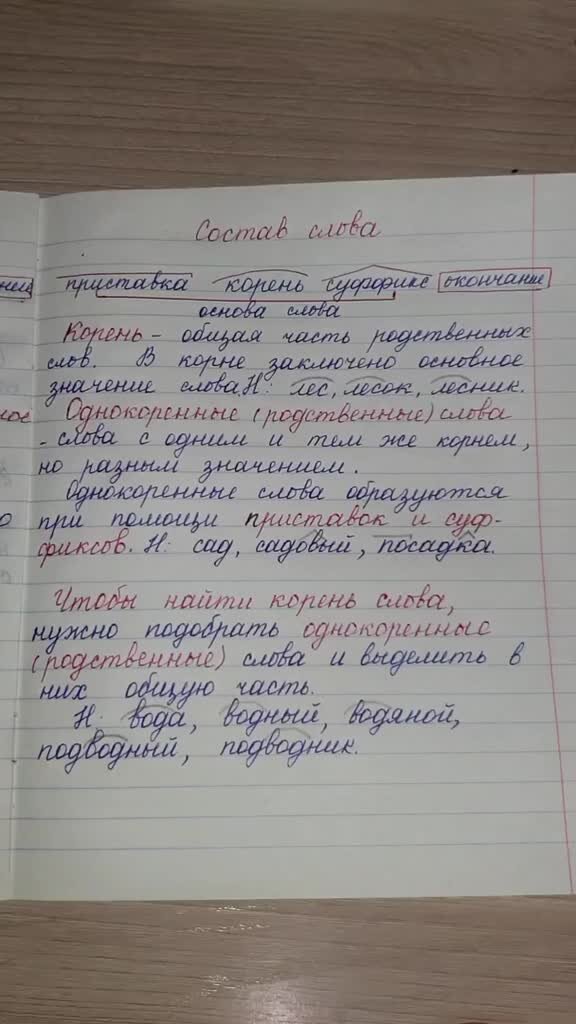 Состав слова
приставка корень суффикс окончание
основа слова
Корень - общая часть родственных
слов. В корне заключено основное
значение слова. Н: лес, лесок, лесник.
Однокоренные (родственные) слова
- слова с одним и тем же корнем,
но разным значением.
Однокоренные слова образуются
при помощи приставок и суф-
фиксов. Н: сад, садовый, посадка.
Чтобы найти корень слова,
нужно подобрать однокоренные
(родственные) слова и выделить в
них общую часть.
Н: вода, водный, водяной,
подводный, подводник.